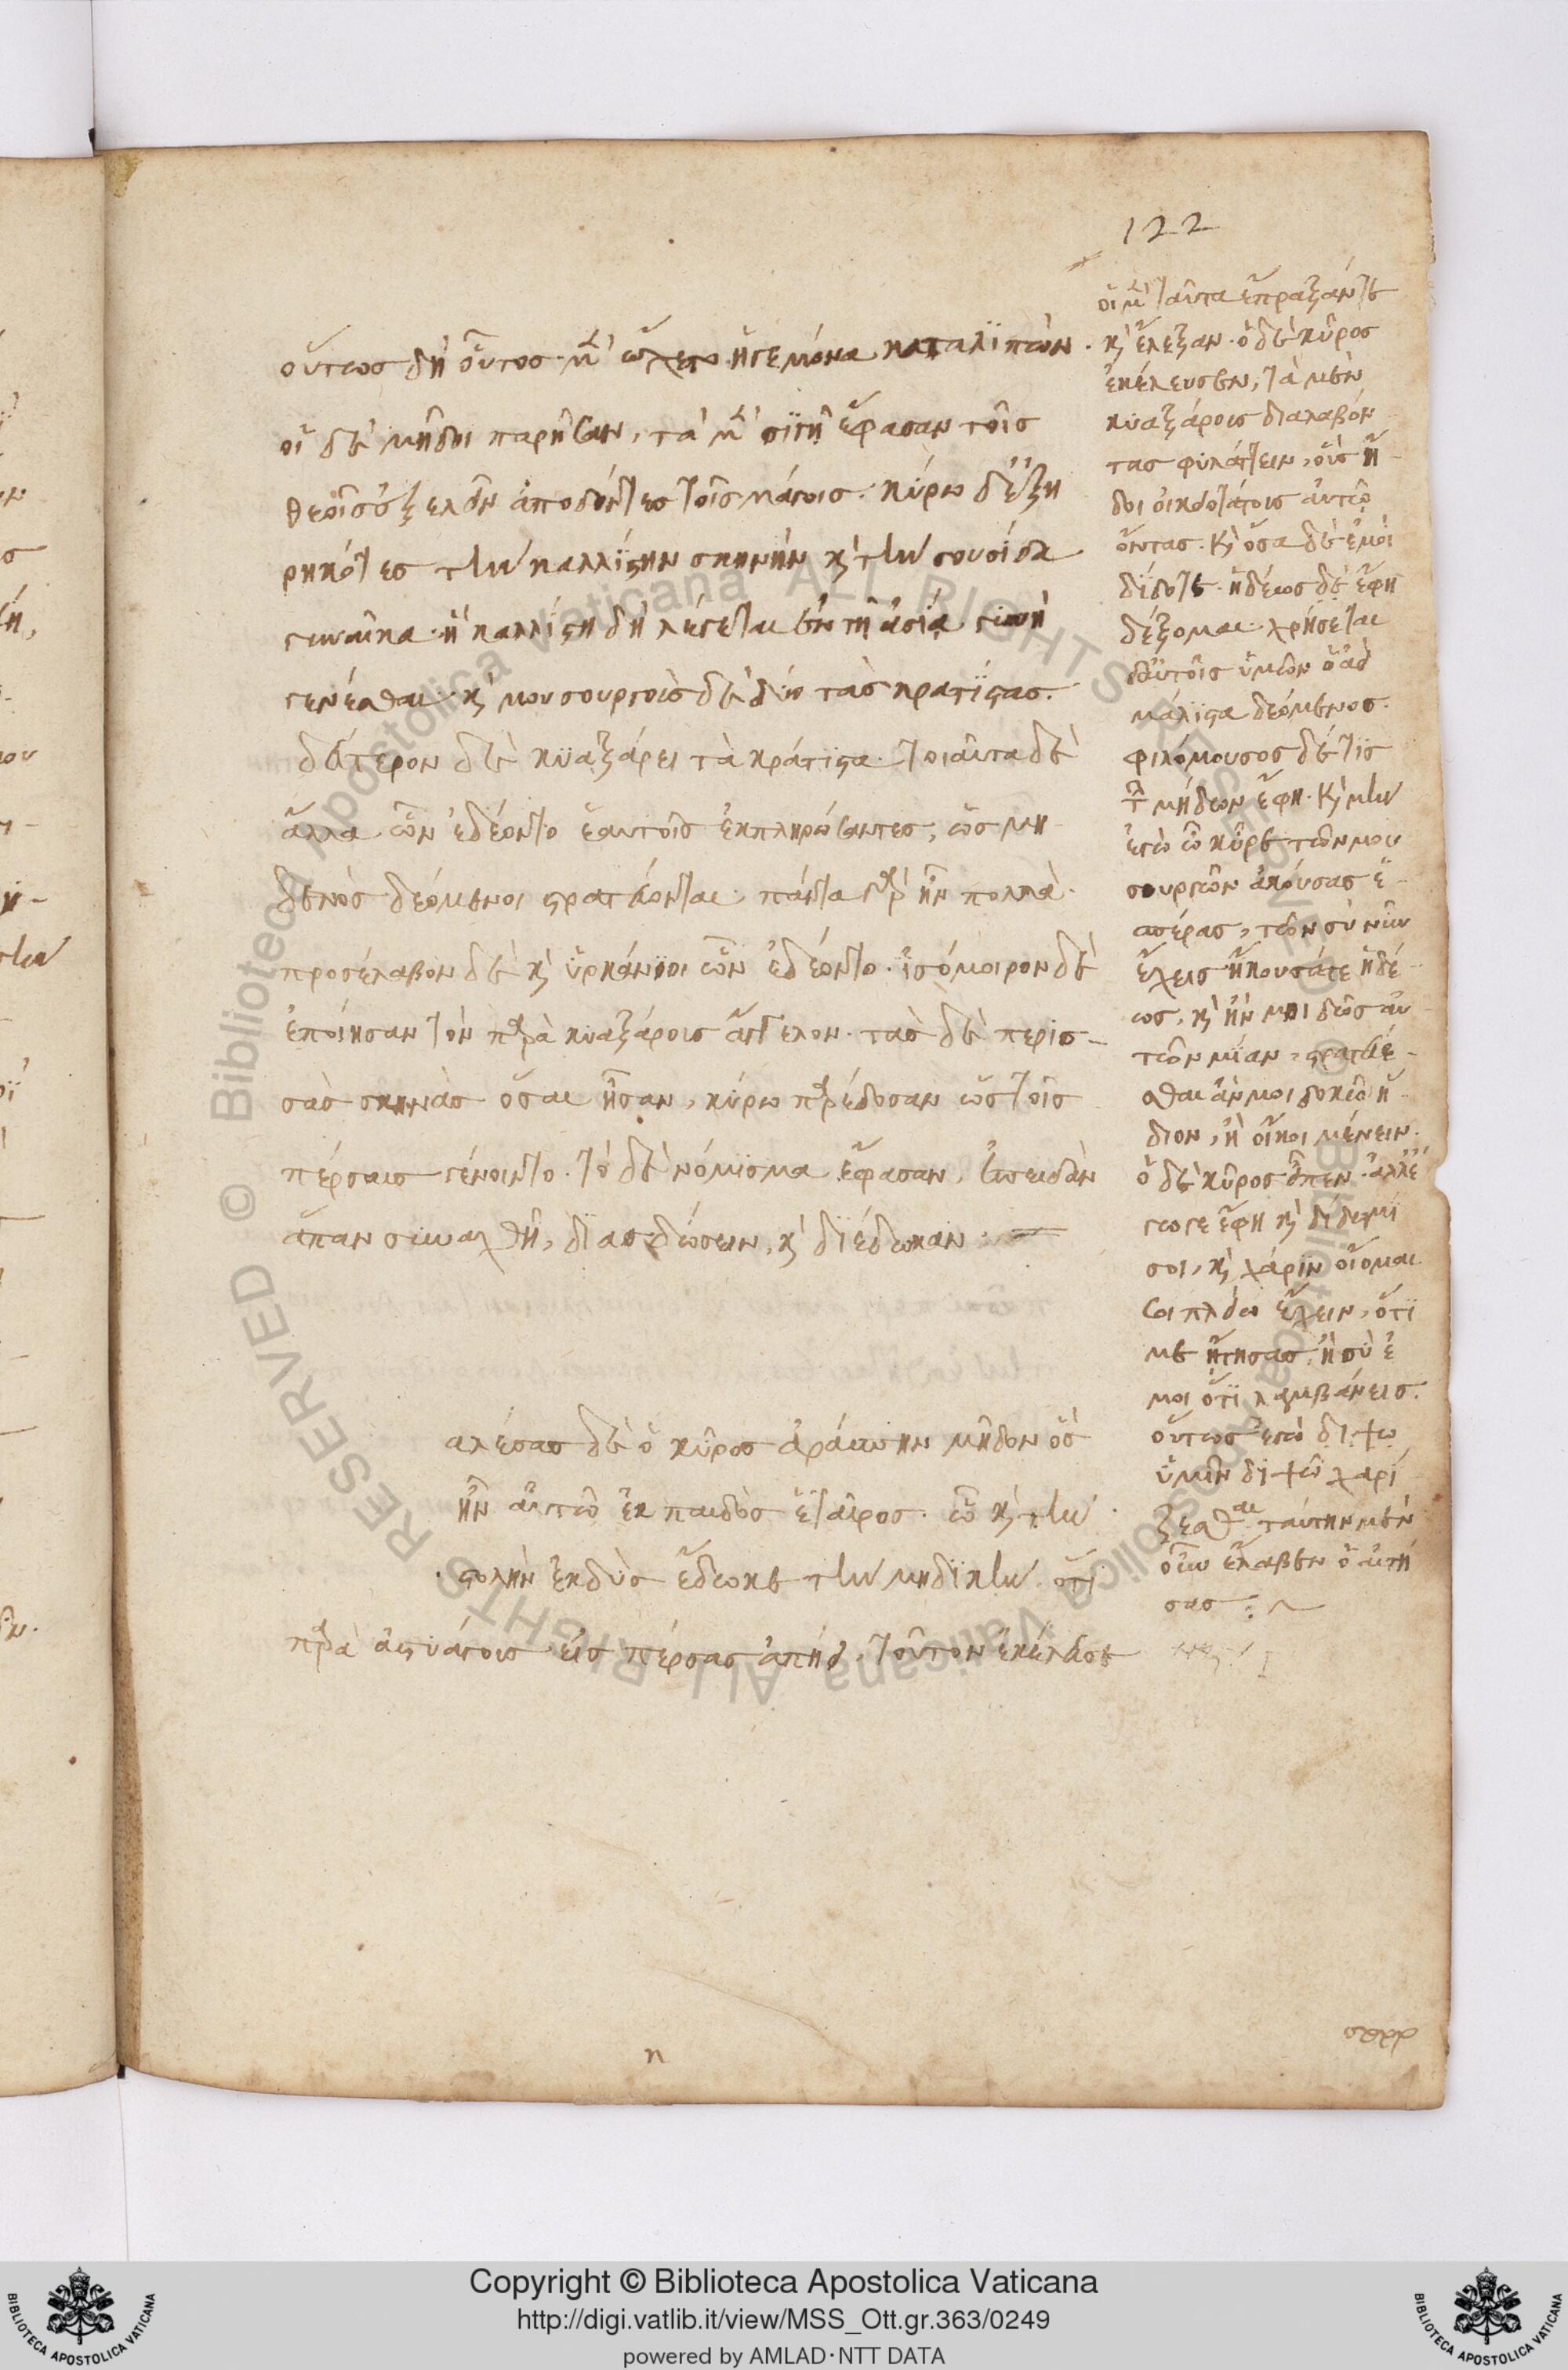 122
οὕτως δὴ οὗτος μὲν ᾤχετο ἡγεμόνα καταλϊπών.
οἱ δὲ μῆδοι παρῆσαν, τὰ μὲν σίγῃ ἔφασαν τοῖς
θεοῖς ἐξελεῖν ἀποδόντες τοῖς μάγοις. κύρω δ' ἐξῃ
ρηκότες τὴν καλλίστην σκηνὴν κὶ τὴν σουσίδα
γυναῖκα ἣ καλλίστη δὴ λέγεται ἐν τῇ ἀσίᾳ γυνὴ
γενέσθαι κὶ μουσουργοὺς δὲ δύο τὰς κρατίστας.
δεύτερον δὲ κϋαξάρει τὰ κράτιϊστα. τοιαῦτα δὲ
ἄλλα ὧν ἐδέοντο ἑαυτοῖς ἐκπληρώσαντες, ὡς μη
δενὸς δεόμενοι στρατεύωνται. πάντα γὰρ ἦν πολλὰ.
προσέλαβον δὲ κὶ ὑρκάνιοι ὧν ἐδέοντο. ἰσόμοιρον δὲ
ἐποίησαν τὸν παρὰ κϋαξάρους ἄγγελον. τὰς δὲ περισ-
σὰς σκηνὰς ὅσαι ἦσαν, κύρω παρέδοσαν ὡς τοῖς
πέρσαις γένοιντο. τὸ δὲ νόμισμα ἔφασαν, ἐπειδὰν
ἅπαν συλλεχθῇ, διαδώσειν, κὶ διέδωκαν.
αλέσας δὲ ὁ κῦρος ἀράσπην μῆδον ὃς
ἦν αὐτῶ ἐκ παιδὸς ἑταῖρος. ὧ κὶ τὴν
στολὴν ἐκδὺς ἔδωκε τὴν μηδικὴν ὅτε
παρὰ ἀστυάγους εἰς πέρσας ἀπῄει, τοῦτον ἐκέλευσε
οἱ μὲν ταῦτα ἔπραξάν τε
κὶ ἔλεξαν. ὁ δὲ κῦρος
ἐκέλευσεν, τὰ μὲν
κϋαξάρους διαλαβόν
τας φυλάττειν, οὓς ᾔ-
δει οἰκειοτάτους αὐτῶ
ὄντας. κὶ ὅσα δὲ ἐμοὶ
δίδοτε ἡδέως δὲ ἔφη
δέξομαι. χρήσεται
δ' αὐτοῖς ὑμῶν ὁ ἀεὶ
μάλιστα δεόμενος.
φιλόμουσος δέ τις
τῶν μήδων ἔφη. κὶ μὴν
ἐγὼ ὦ κῦρε τῶν μου
σουργῶν ἀκούσας ἑ-
σπέρας, ὧν σὺ νῦν
ἔχεις ἤκουσά τε ἡδέ
ως, κὶ ἤν μοι δῶς αὐ
τῶν μίαν, στρατεύε-
σθαι ἄν μοι δοκῶ ἥ-
διον, ἢ οἴκοι μένειν.
ὁ δὲ κῦρος εἶπεν. ἀλλ' ἐ
γώ γε ἔφη κὶ δίδωμί
σοι, κὶ χάριν οἴομαι
σοι πλείω ἔχειν, ὅτι
με ᾔτησας, ἢ σὺ ἐ
μοὶ ὅτι λαμβάνεις.
οὕτως ἐγὼ διψῶ
ὑμῖν διψῶ χαρί
ζεσθαι ταύτην μὲν
οὖν ἔλαβεν ὁ αἰτή
σας
Copyright © Biblioteca Apostolica Vaticana
http://digi.vatlib.it/view/MSS_Ott.gr.363/0249
powered by AMLAD·NTT DATA